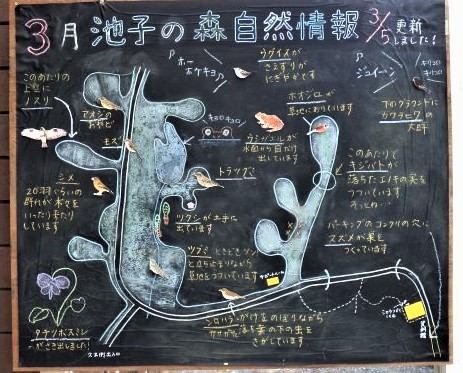 3月 池子の森自然情報 3/5更新
しました!
ウグイスが
さえずりが
にぎやかです
ホー
ホケキョ
ジュイーン
キリコロ
キリコロ
このあたりの
上空に
ノスリ
アオジの
おやど
モズ
キョロキョロ
ウシガエルが
水面から目だけ
出しています
ホオジロが
草地におりています
下のグラウンドに
カワラヒワの
大群
シメ
20羽ぐらいの
群れが木々を
いったりきたり
しています
トラツグミ
このあたりで
キジバトが
落ちたエノキの実を
つついています
ずっとね…
ツクシが土手に
出ています
ツグミ ときどきツン
と立ちどまりながら
草地をつついています
パーキングのコンクリの穴に
スズメが巣を
つくっています
サポートルーム
タチツボスミレ
がさき出しました!
シロハラ がけ上をのぼりながら
ガサガサ落ち葉の下の虫を
さがしています
久木側出入口